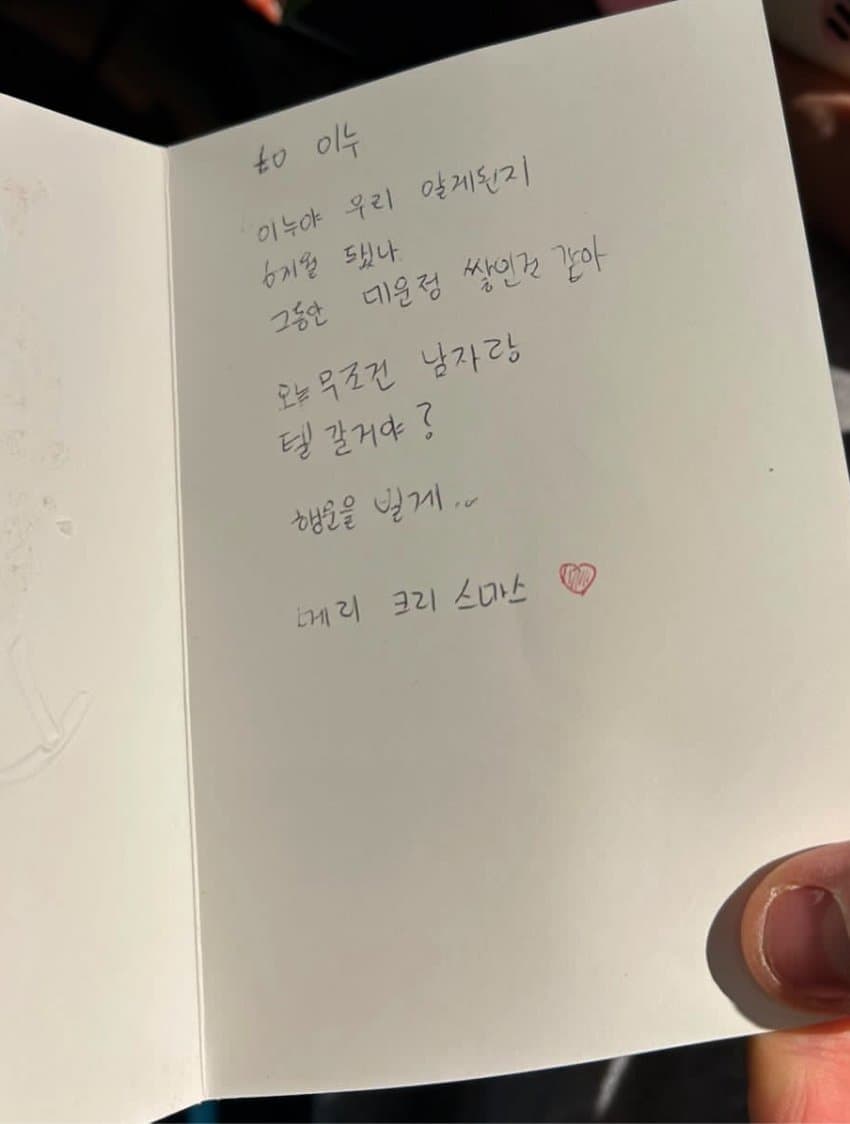 to 이누
이누야 우리 알게된지
6개월 됐나
그동안 미운정 쌓인것 같아
오늘 무조건 남자랑
텔 갈거야?
행운을 빌게..
메리 크리스마스 ♥